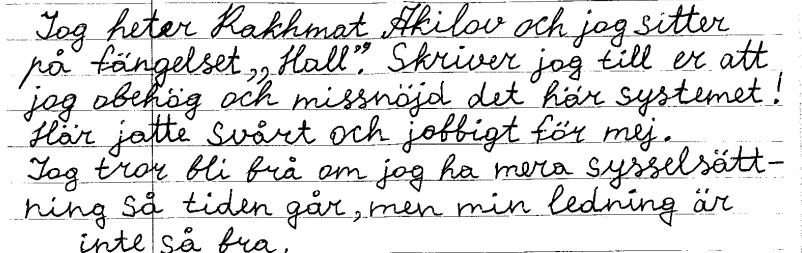 Jag heter Rakhmat Akilov och jag sitter
på fängelset „Hall”. Skriver jag till er att
jag obehög och missnöjd det här systemet!
Här jätte svårt och jobbigt för mej.
Jag tror bli brå om jag ha mera sysselsätt-
ning så tiden går, men min ledning är
inte så bra.